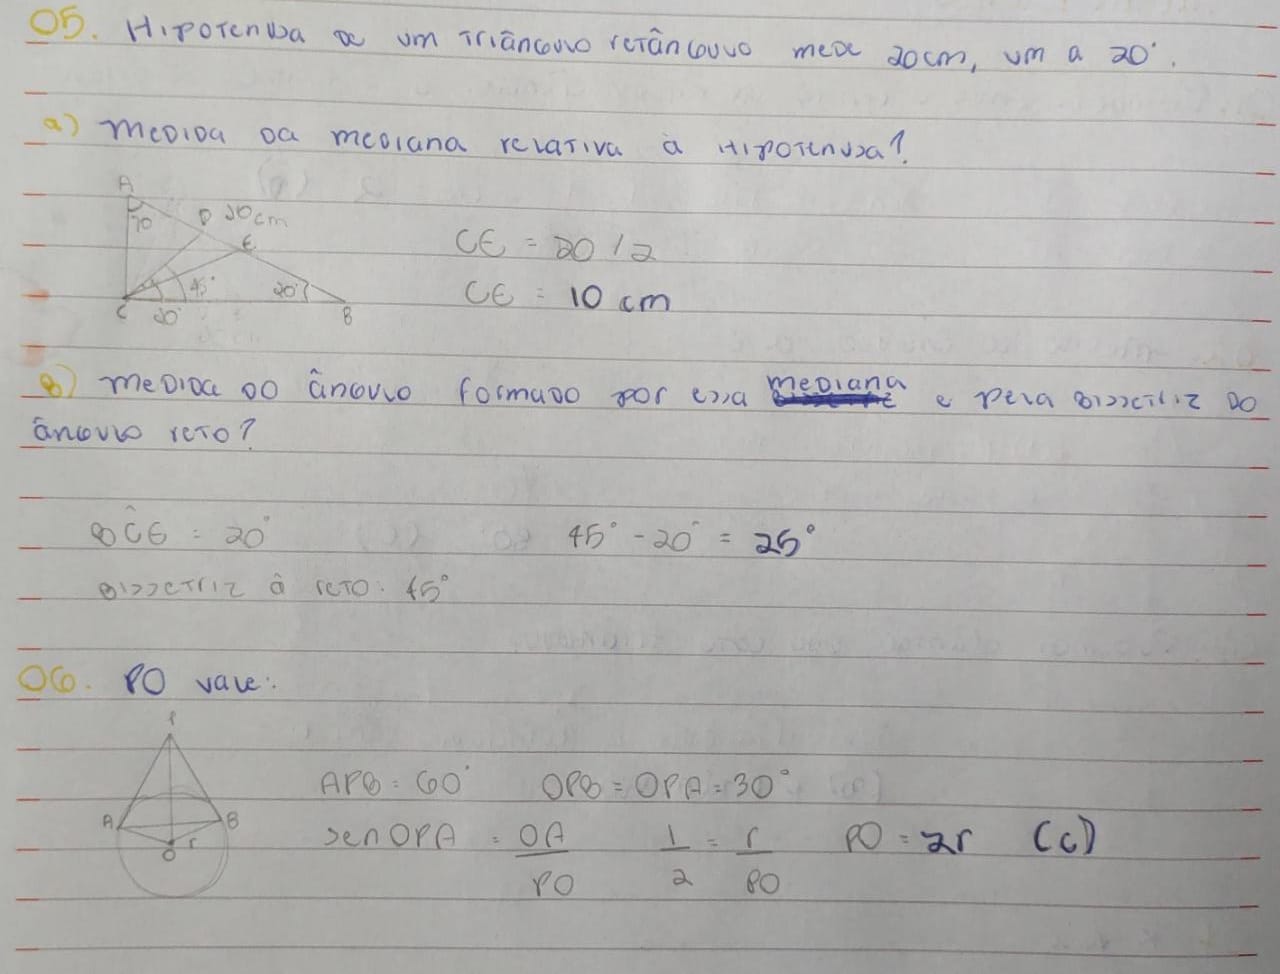 05. Hipotenusa de um triângulo retângulo mede 20cm, um a 20°.
a) medida da mediana relativa à hipotenusa?
A
70
D 20cm
E
45°
20°
C 20° B
CE = 20/2
CE = 10 cm
B) medida do ângulo formado por essa mediana e pela bissetriz do
ângulo reto?
BĈE = 20° 45° - 20° = 25°
Bissetriz â reto: 45°
06. PO vale:
P
A B
O r
APB = 60° OPB = OPA = 30°
sen OPA = OA/PO 1/2 = r/PO PO = 2r (c)